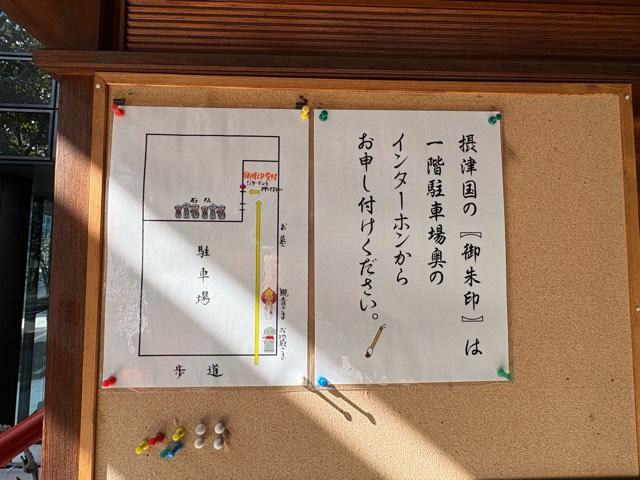 摂津国の【御朱印】は
一階駐車場奥の
インターホンから
お申し付けください。
御朱印受付
石仏
お墓
駐車場
観音さま
お地蔵さま
歩道